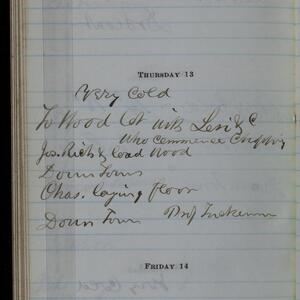 THURSDAY 13
Very Cold
To Wood Lot with Levi & C
who commence Chopping
Jos. Rich & load Wood
Down Town
Chas. laying floor
Down Town Prof Tuckerman
FRIDAY 14